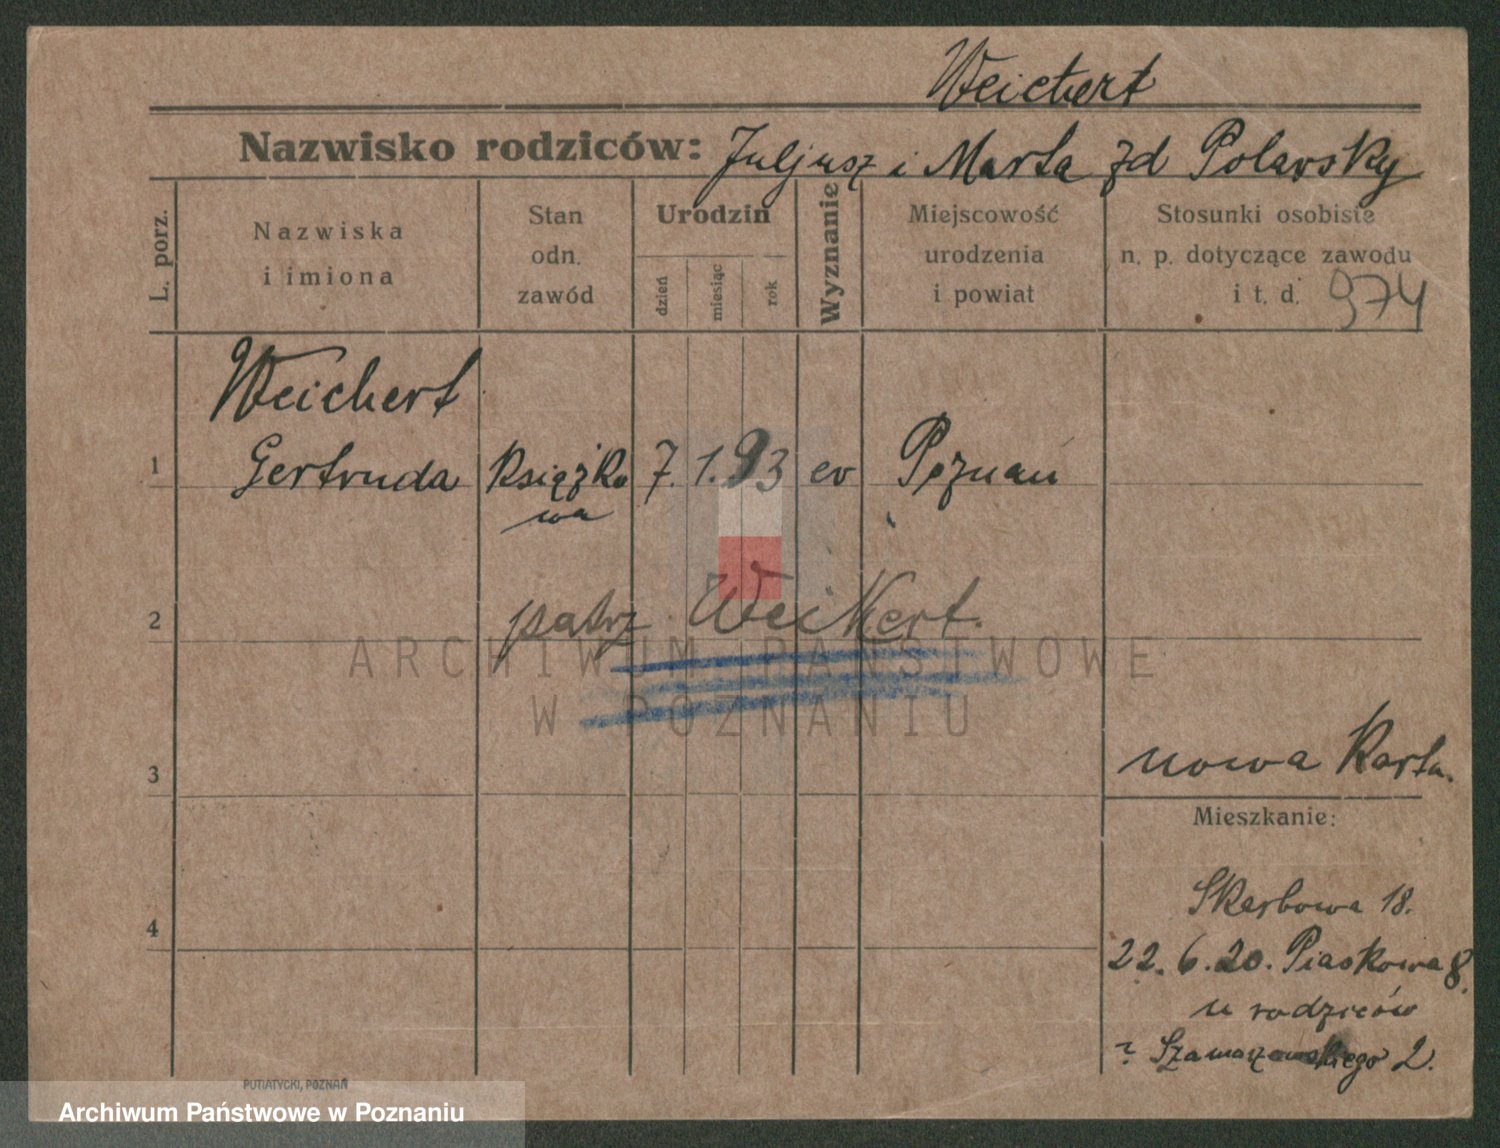 Weichert
Nazwisko rodziców: Juljusz i Marta zd Polarsky
L. porz.
Nazwiska
i imiona
Stan
odn.
zawód
Urodzin
dzień
miesiąc
rok
Wyznanie
Miejscowość
urodzenia
i powiat
Stosunki osobiste
n. p. dotyczące zawodu
i t. d. 974
Weichert
1 Gertruda Książko 7. 1. 93 ev Poznań
wa
2 patrz Weikert.
ARCHIWUM PAŃSTWOWE
W POZNANIU
nowa Karta.
3
Mieszkanie:
Skarbowa 18.
4
22. 6. 20. Piaskowa 8.
u rodziców
2.
PUTIATYCKI, POZNAŃ
Archiwum Państwowe w Poznaniu